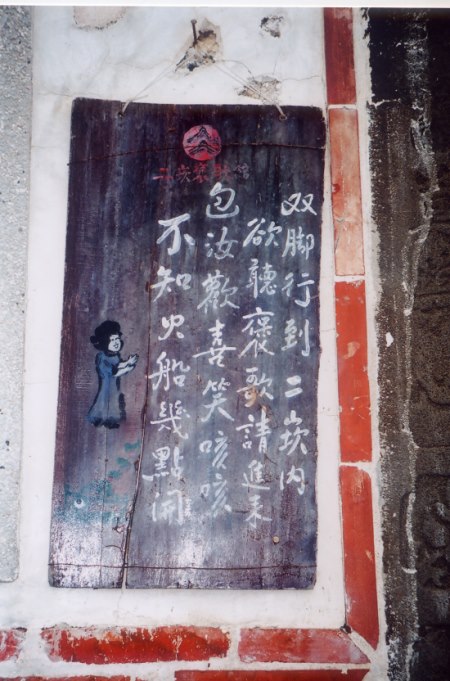 二崁褒歌館
双脚行到二崁內
欲聽褒歌請進來
包汝歡喜笑咳咳
不知火船幾點開